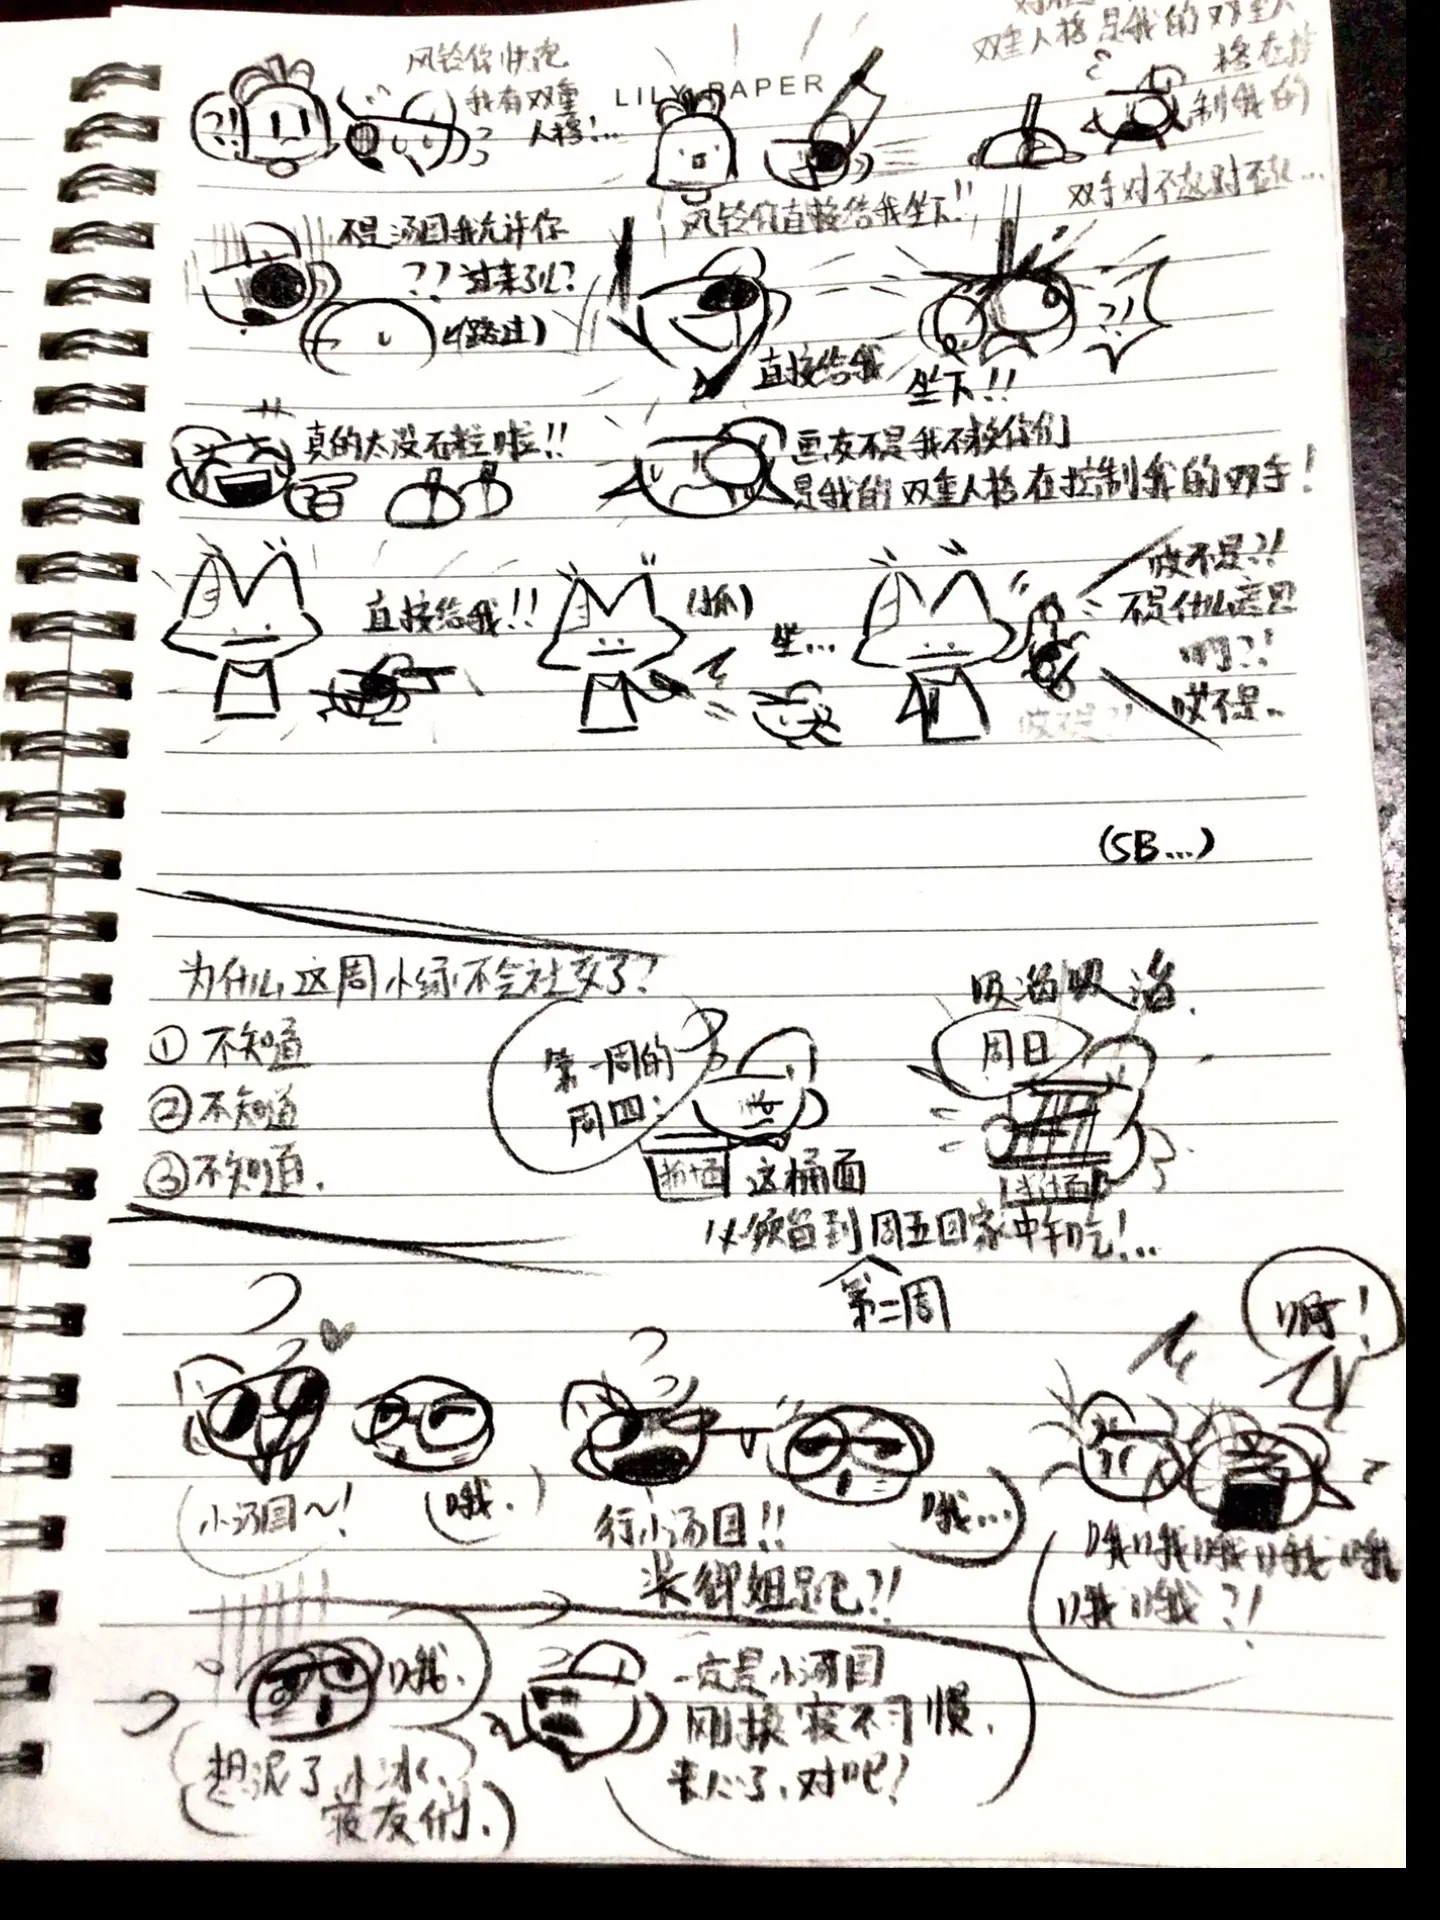 风铃你快跑
我有双重
人格!...
LILY PAPER
双重人格是我的双重人
格在控
制我的
双手对不起对不起...
?!
风铃你直接给我坐下!!
不是汤圆我允许你
??过来了儿?
(路过)
直接给我
坐下!!
?!
真的太没有礼啦!!
画友不是我不救你们
是我的双重人格在控制我的双手!
直接给我!!
(抓)
坐...
哎不是?!
不是什么意思
啊?!
哎不是..
哎不是?!
(SB...)
为什么这周小绿不会社交了?
①不知道
②不知道
③不知道.
第一周的
周四:
拌面
这桶面
必须留到周五回家中午吃!...
吸溜吸溜.
周日
拌面
第二周
小汤圆~!
(哦.)
行小汤圆!!
装御姐是吧?!
哦...
啊!
哦哦哦哦哦
哦哦?!
哦.
想泥了小冰、
寝友们.)
一定是小汤圆
刚换寝不习惯.
来人了,对吧!